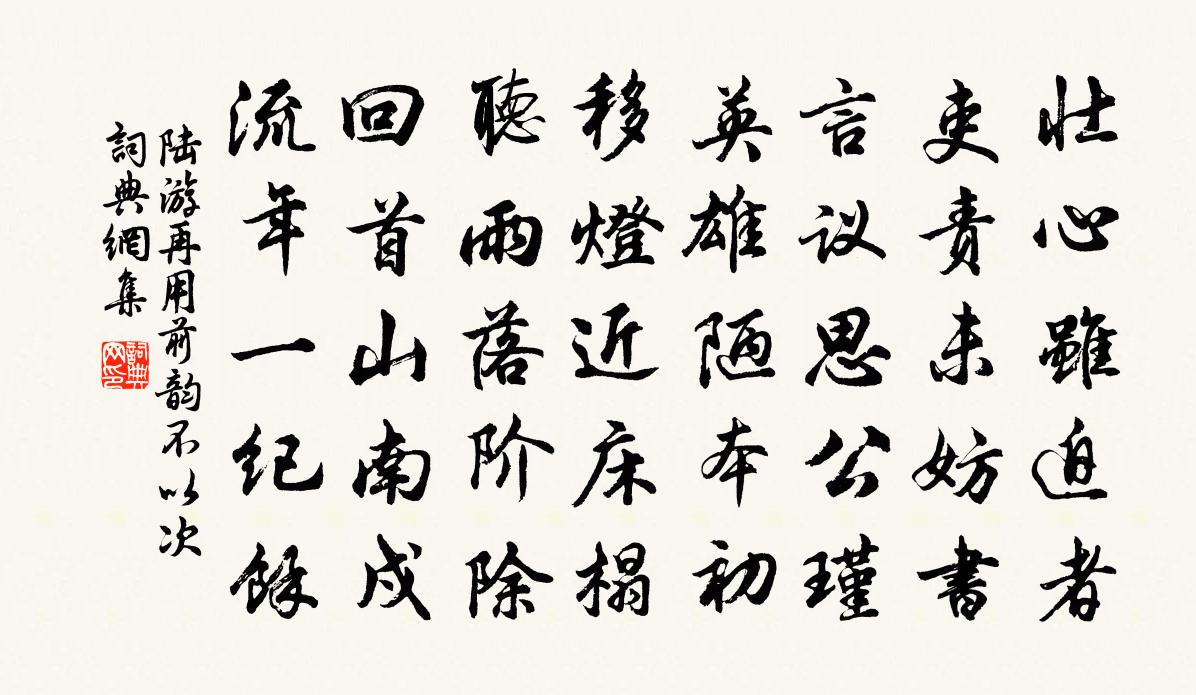 壮心雖迫者
吏责未妨書
言议思公瑾
英雄陋本初
移燈近床榻
聽雨落阶除
回首山南戍
流年一纪餘
陆游再用前韵不以次
詞典網集
詞典网印